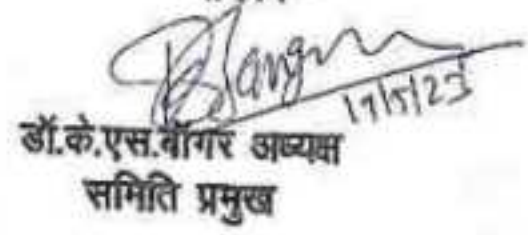 17/5/23
डॉ.के.एस.बांगर अध्यक्ष
समिति प्रमुख